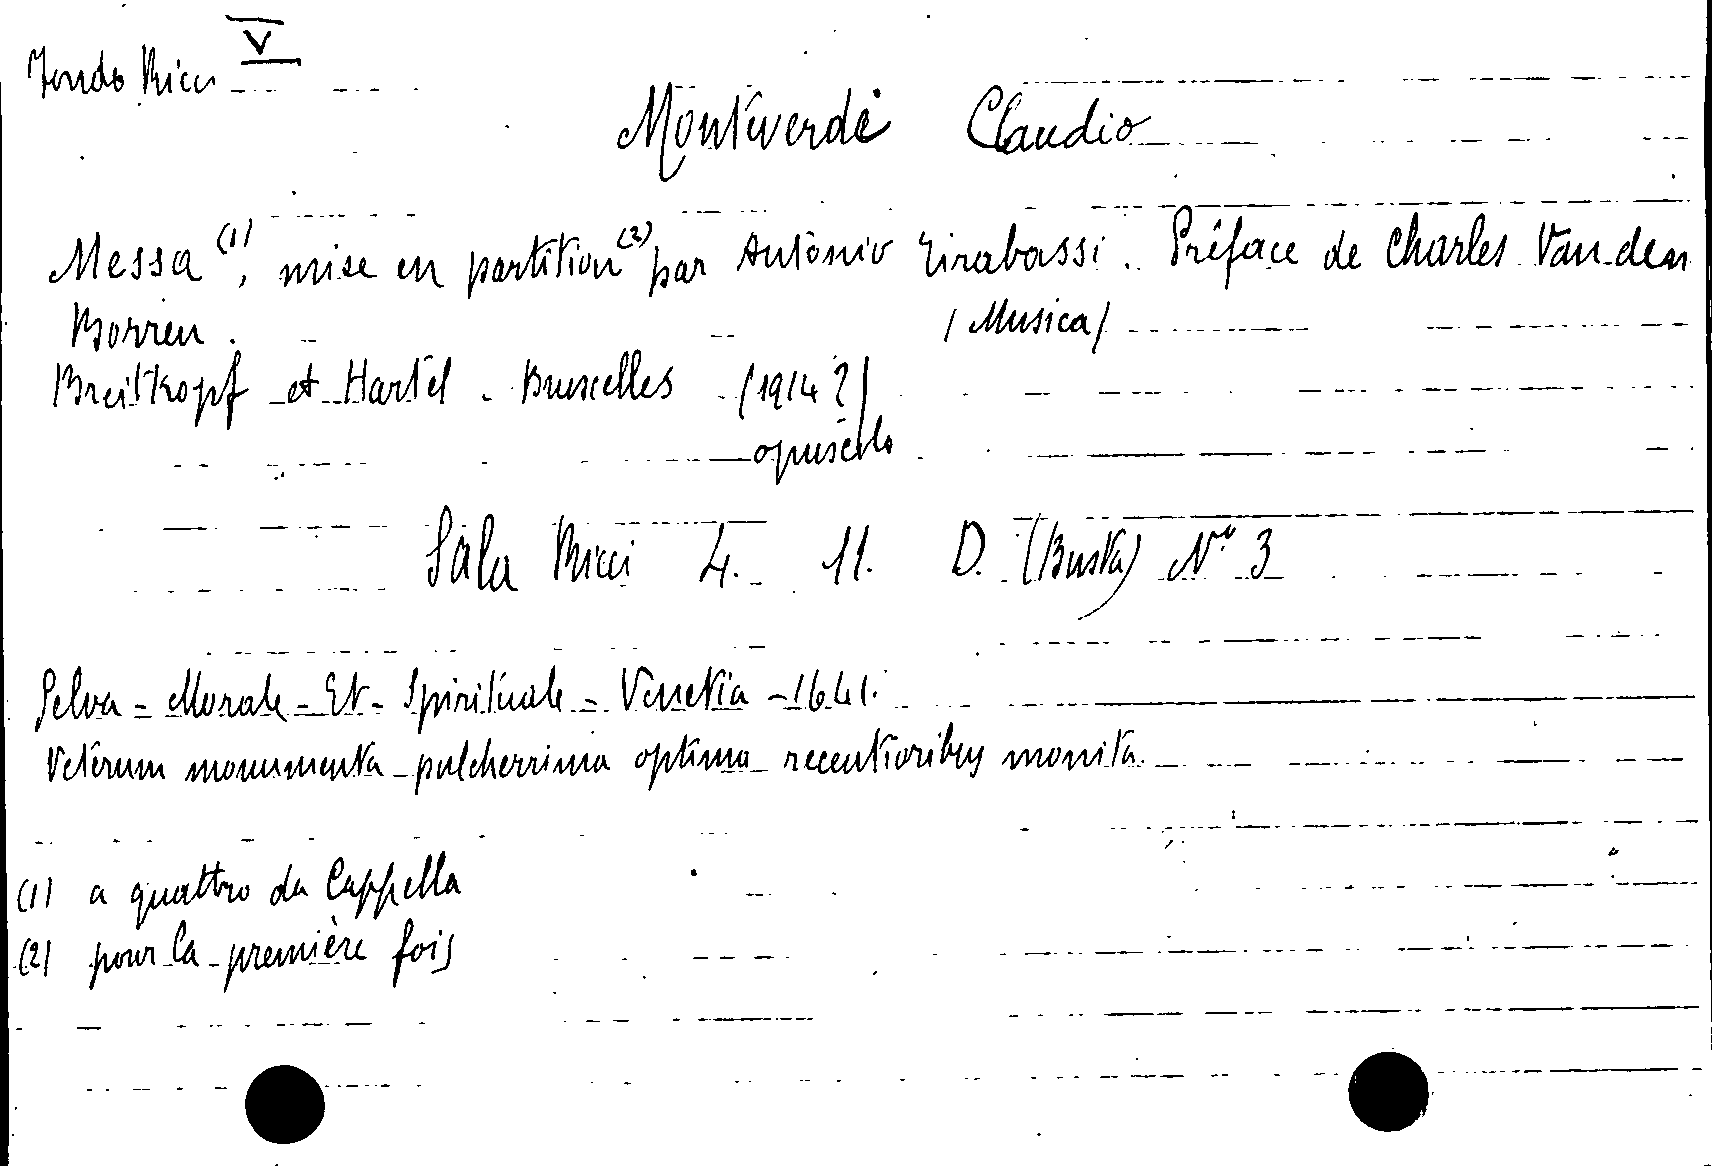 Fondo Ricci V
Monteverdi Claudio
Messa (1), mise en partition (2) par Antonio Tirabassi. Préface de Charles Van den
Borren. (Musica)
Breitkopf et Hartel. Bruxelles (1914?)
opuscolo
Sala Ricci 4. 11. D. (Busta) N° 3
Selva - Morale - Et - Spirituale - Venetia - 1641.
Veterum monumenta pulcherrima optima recentioribus monita.
(1) a quattro da Cappella
(2) pour la première fois